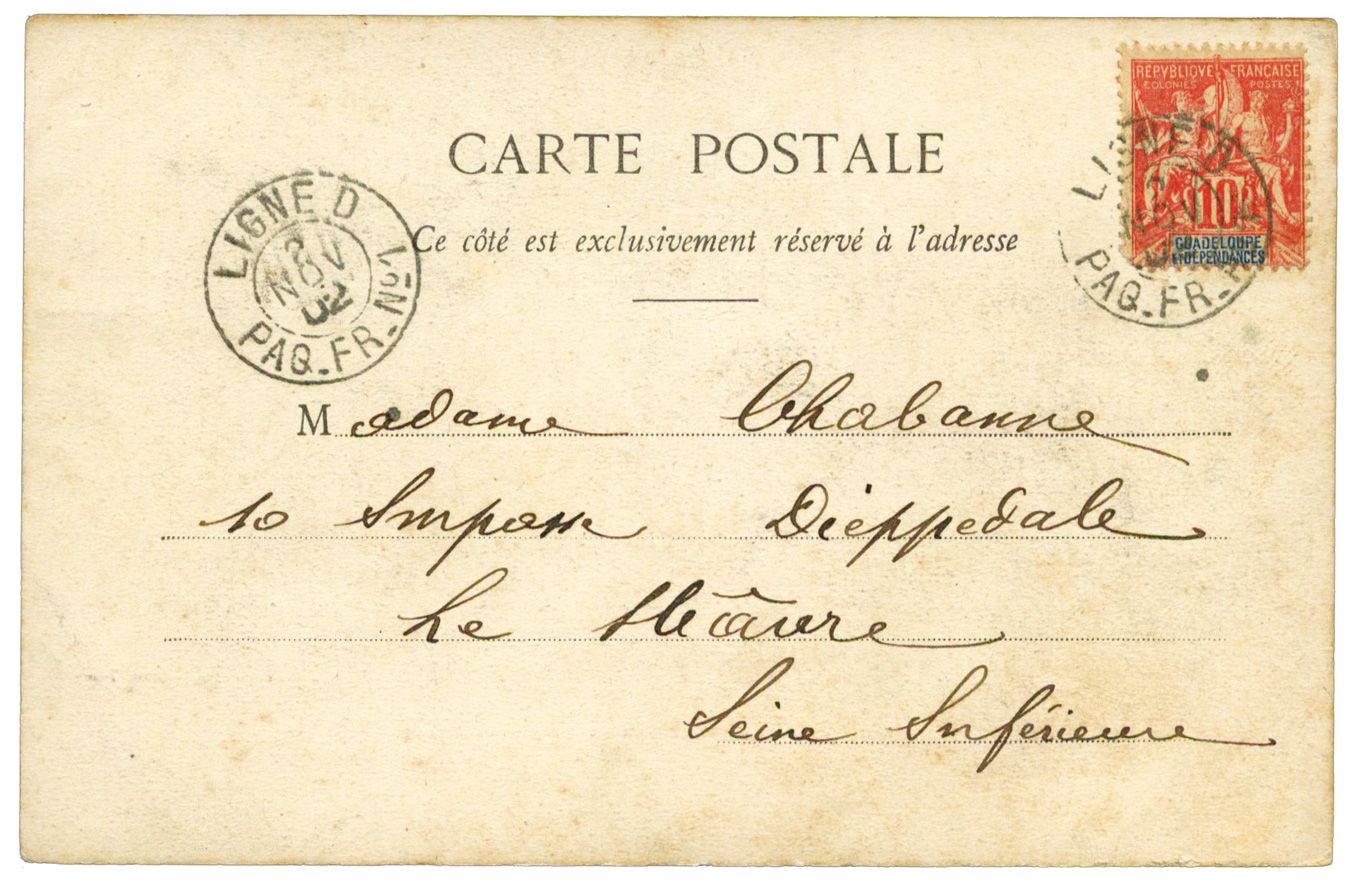 REPVBLIQVE FRANÇAISE
COLONIES POSTES
10
GUADELOUPE
ET DÉPENDANCES
LIGNE D
PAQ. FR.
CARTE POSTALE
Ce côté est exclusivement réservé à l'adresse
LIGNE D
NOV
02
PAQ. FR. Nº1
Madame Chabanne
10 Impasse Dieppedale
Le Hâvre
Seine Inférieure